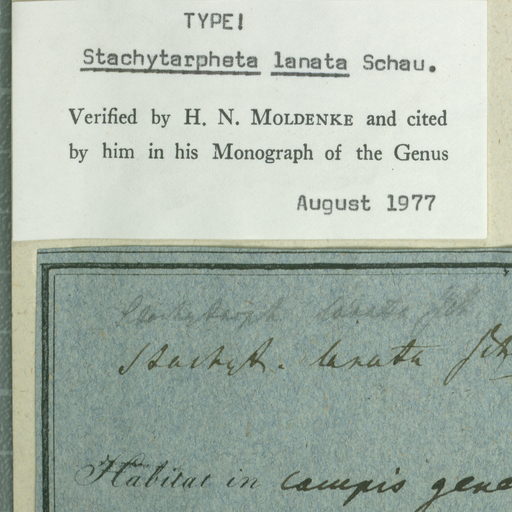 TYPE!
Stachytarpheta lanata Schau.
Verified by H. N. MOLDENKE and cited
by him in his Monograph of the Genus
August 1977
Stachytarph lanata Sch
Stachyt. lanata Sch
Habitat in campis gene